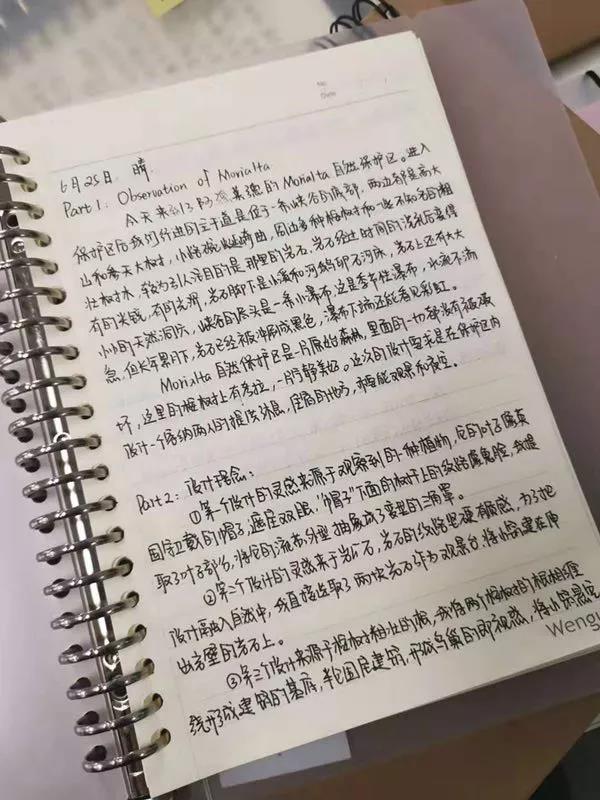 No.
Date
6月25日 晴
Part 1: Observation of Morialta
今天来到了阿德莱德的Morialta自然保护区。进入
保护区后我们行进的主干道是位于一条峡谷的底部，两边都是高大
山和参天大树，小路蜿蜒弯曲，周边多种桉树和一些不知名的粗
壮树木，较为引人注目的是那里的岩石，岩石经过时间的洗礼后变得
有的尖锐，有的光滑，岩石脚下是小溪和河鹅卵石河床，岩石上还有大大
小小的天然洞穴，峡谷的尽头是一条小瀑布，这是季节性瀑布，水流不湍
急，但长年累月下，岩石已经被冲刷成黑色，瀑布下端还能看见彩虹。
Morialta自然保护区是一片原始森林，里面的一切都没有被破
坏，这里的桉树上有考拉，一片宁静美好。这次的设计要求是在保护区内
设计一个容纳两人的提供休息，住宿的地方，要能观景和夜空。
Part 2: 设计理念：
①第一个设计的灵感来源于观察到的一种植物，它的叶子像英
国卫戴的帽子，遮住双眼，"帽子"下面的树干上的纹路像脸，我提
取了叶子部分，将它的流布外型抽象成了变型的三角罩。
②第二个设计的灵感来于岩石，岩石的纹路坚硬有肌感，为了把
设计融入自然中，我直接选取了两块岩石作为观景台，将小窝建在伸
出岩壁的岩石上。
③第三个设计来源于桉树粗壮的根，我将两个桉树的根相缠
绕形成建筑的基底，半包围居建筑，形成鸟巢的即视感，将小窝悬
Weng